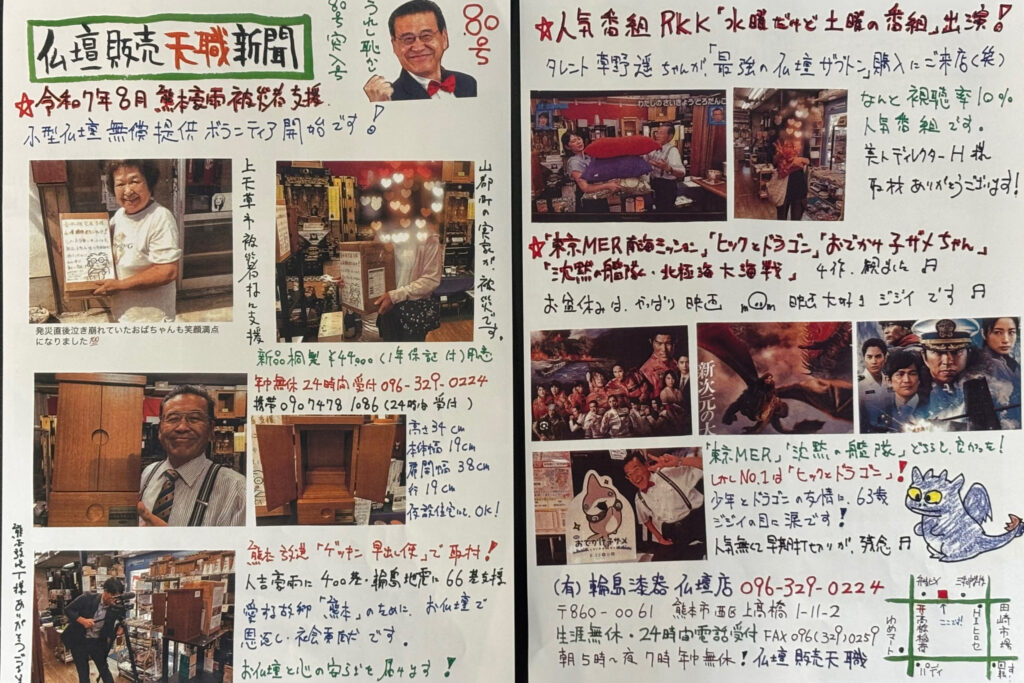 仏壇販売天職新聞
うれし恥かし
80号突入号
80号
☆令和7年8月熊本豪雨被災者支援
小型仏壇無償提供ボランティア開始です!
上天草市被災者様に支援
山都町の実家が、被災です。
発災直後泣き崩れていたおばちゃんも笑顔満点
になりました
新品桐製 ¥44,000(1年保証付)用意
年中無休24時間受付 096-329-0224
携帯 090 7478 1086 (24時間受付)
高さ34cm
本体幅19cm
扉開幅38cm
行19cm
仮設住宅に、OK!
熊本放送「ゲツキン早出し便」で取材!
人吉豪雨に400基・輪島地震に66基支援
愛する故郷「熊本」のために、お仏壇で
恩返し・社会貢献です。
お仏壇と心の安らぎを届けます!
様ありがとうござい
☆人気番組RKK「水曜だけど土曜の番組」出演!
タレント草野遥ちゃんが、「最強の仏壇ザブトン」購入にご来店(笑)
わたしのさいきょうとろだんこ
なんと視聴率10%
人気番組です。
美人ディレクターH様
取材ありがとうございます!
☆「東京MER南海ミッション」「ヒックとドラゴン」「おでかけ子ザメちゃん」
「沈黙の艦隊・北極海大海戦」 4作、観ました♬
お盆休みは、やっぱり映画 映画大好きジジイです♬
新次元の
おでかけ子ザメ
「東京MER」「沈黙の艦隊」どちらも、良かった!
しかしNo.1は「ヒックとドラゴン」!
少年とドラゴンの友情に、63歳
ジジイの目に涙です!
人気無くて早期打切りが、残念♬
(有)輪島漆器仏壇店 096-329-0224
〒860-0061 熊本市西区上高橋1-11-2
生涯無休・24時間電話受付 FAX 096(329)0259
朝5時〜夜7時年中無休!仏壇販売天職
ゆめマート
高橋稲荷
ココ
田崎市場